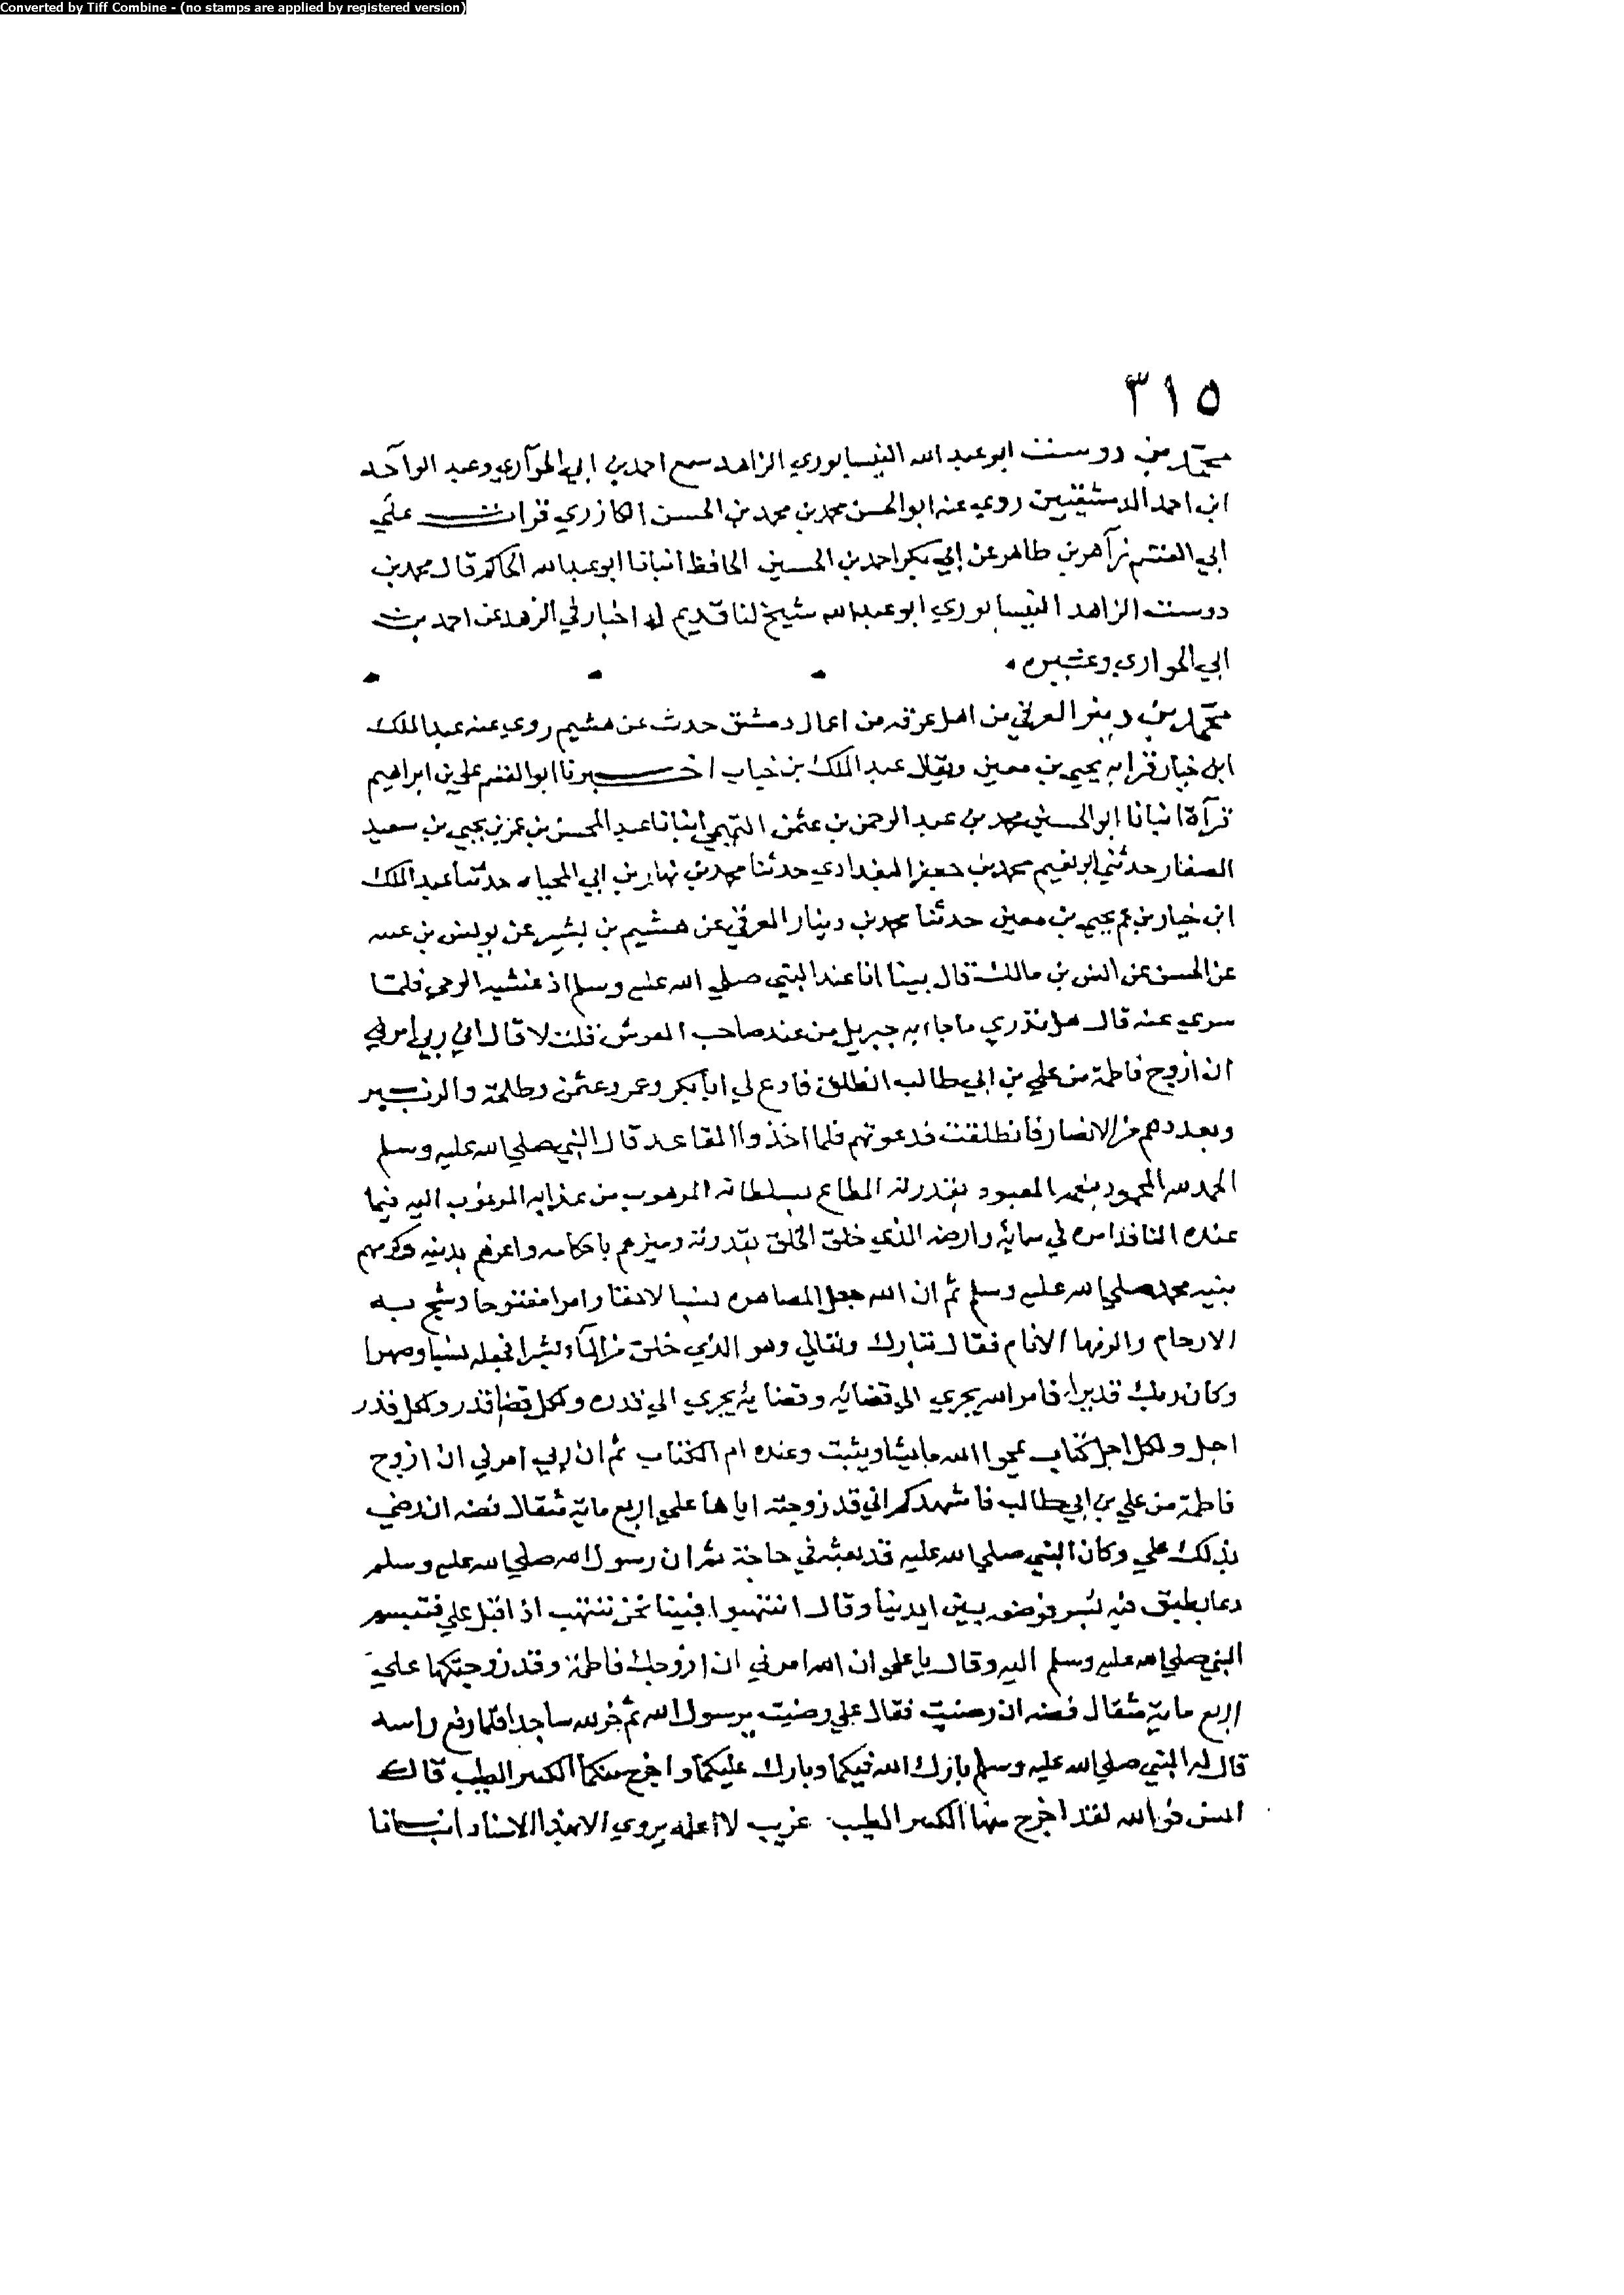 Converted by Tiff Combine - (no stamps are applied by registered version)
٣١٥
محمد بن دوست ابو عبد الله النيسابوري الزاهد سمع احمد بن ابي الحواري وعبد الواحد
ابن احمد الدمشقيين روى عنه ابو الحسن محمد بن محمد بن الحسن الكازري قرات على
ابي القسم زاهر بن طاهر عن ابي بكر احمد بن الحسين الحافظ انبانا ابو عبد الله الحاكم قال محمد بن
دوست الزاهد النيسابوري ابو عبد الله شيخ لنا قديم له اخبار في الزهد عن احمد بن
ابي الحواري وغيره
محمد بن دينر العرقي من اهل عرقه من اعمال دمشق حدث عن هشيم روى عنه عبد الملك
ابن خيار قرابه يحيى بن معين ويقال عبد الملك بن خياب اخبرنا ابو القسم علي بن ابراهيم
قرآة انبانا ابو الحسين محمد بن عبد الرحمن بن عثمن التميمي انبانا عبد المحسن بن عمر بن يحيى بن سعيد
الصفار حدثني ابو نعيم محمد بن جعفر البغدادي حدثنا محمد بن نهار بن ابي المحياه حدثنا عبد الملك
ابن خيار بن عم يحيى بن معين حدثنا محمد بن دينار العرقي عن هشيم بن بشير عن يونس بن عبيد
عن الحسن عن انس بن مالك قال بينا انا عند النبي صلى الله عليه وسلم اذ غشيه الوحي فلما
سري عنه قال هل تدري ما جا ابه جبريل من عند صاحب العرش قلت لا قال ان ربي امرني
ان ازوج فاطمة من علي بن ابي طالب انطلق فادع لي ابا بكر وعمر وعثمن وطلحة والزبير
وبعددهم من الانصار فانطلقت فدعوتهم فلما اخذوا المقاعد قال النبي صلى الله عليه وسلم
الحمد لله المحمود بنعمه المعبود بقدرته المطاع بسلطانه المرهوب من عذابه المرغوب اليه فيما
عنده النافذ امره في سمايه وارضه الذي خلق الخلق بقدرته وميزهم باحكامه واعزهم بدينه واكرمهم
بنبيه محمد صلى الله عليه وسلم ثم ان الله جعل المصاهره نسبا لاحقا وامرا مفترحا وشج به
الارحام والزمها الانام فقال تبارك وتعالي وهو الذي خلق من المآء بشرا فجعله نسبا وصهرا
وكان ربك قديرا فامر الله يجري الى قضائه وقضايه يجري الى قدره ولكل قضا قدر ولكل قدر
اجل ولكل اجل كتاب يمحوا الله ما يشا ويثبت وعنده ام الكتاب ثم ان ربي امرني ان ازوج
فاطمة من علي بن ابي طالب فاشهدكم اني قد زوجته اياها على اربع ماية مثقال فضه ان رضي
بذلك علي وكان النبي صلى الله عليه قد بعثه في حاجة ثم ان رسول الله صلى الله عليه وسلم
دعا بطبق فيه بسر فوضعه بين ايدينا وقال انتهبوا فبينا نحن ننتهب اذ اقبل علي فتبسم
النبي صلى الله عليه وسلم اليه وقال يا علي ان الله امرني ان ازوجك فاطمة وقد زوجتكها على
اربع ماية مثقال فضه ان رضيت فقال علي رضيت يرسول الله ثم خر لله ساجدا فلما رفع راسه
قال له النبي صلى الله عليه وسلم بارك الله فيكما وبارك عليكما واخرج منكما الكثير الطيب قال
انس فوالله لقد اخرج منهما الكثير الطيب غريب لا اعلمه يروي الا بهذا الاسناد انبانا